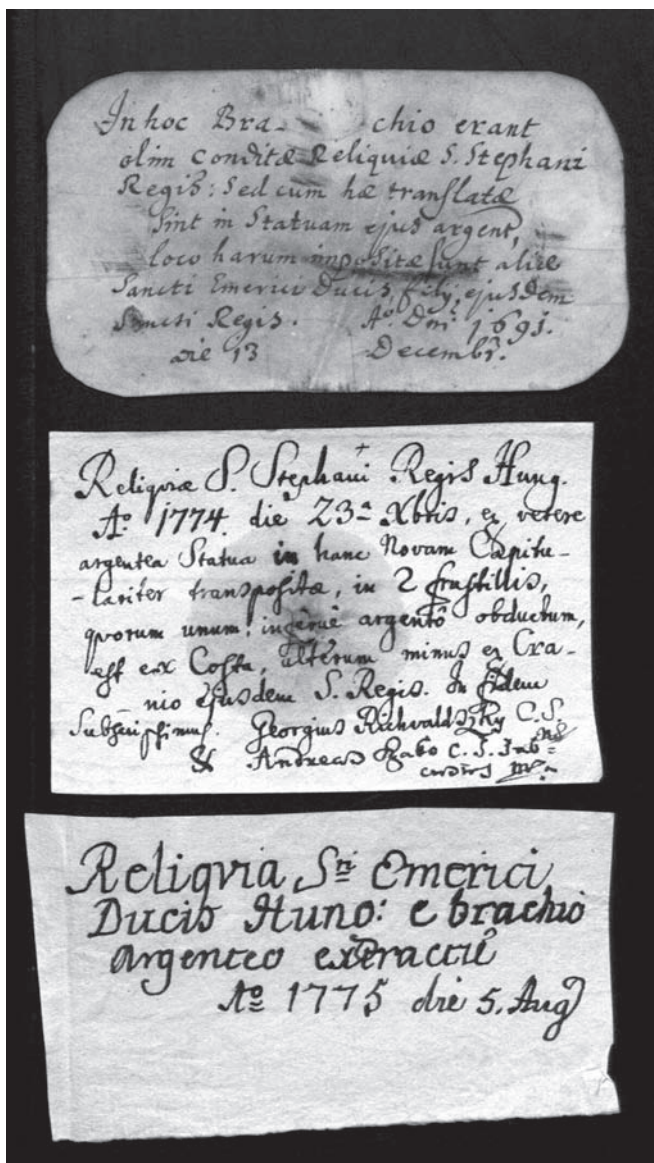 In hoc Bra- chio erant
olim conditæ Reliquiæ S. Stephani
Regis: Sed cum hæ translatæ
sint in Statuam ejus argent,
loco harum impositæ sunt aliæ
Sancti Emerici Ducis, filij, ejusdem
Sancti Regis. Aº. Dni 1691.
die 13 Decembr.
Reliquiæ S. Stephani Regis Hung.
Aº 1774 die 23ª Xbris, ex vetere
argentea Statua in hanc Novam Capitu-
-lariter transpositæ, in 2 frustillis,
quorum unum argentô obductum,
est ex Costa, alterum minus ex Cra-
nio ejusdem S. Regis. In fidem
Subscripsimus. Georgius Richvaldszky C. S.
& Andreas Szabo C. S.
custos
Reliqvia Sti Emerici
Ducis Hung: e brachio
argenteo
Aº 1775 die 5. Aug